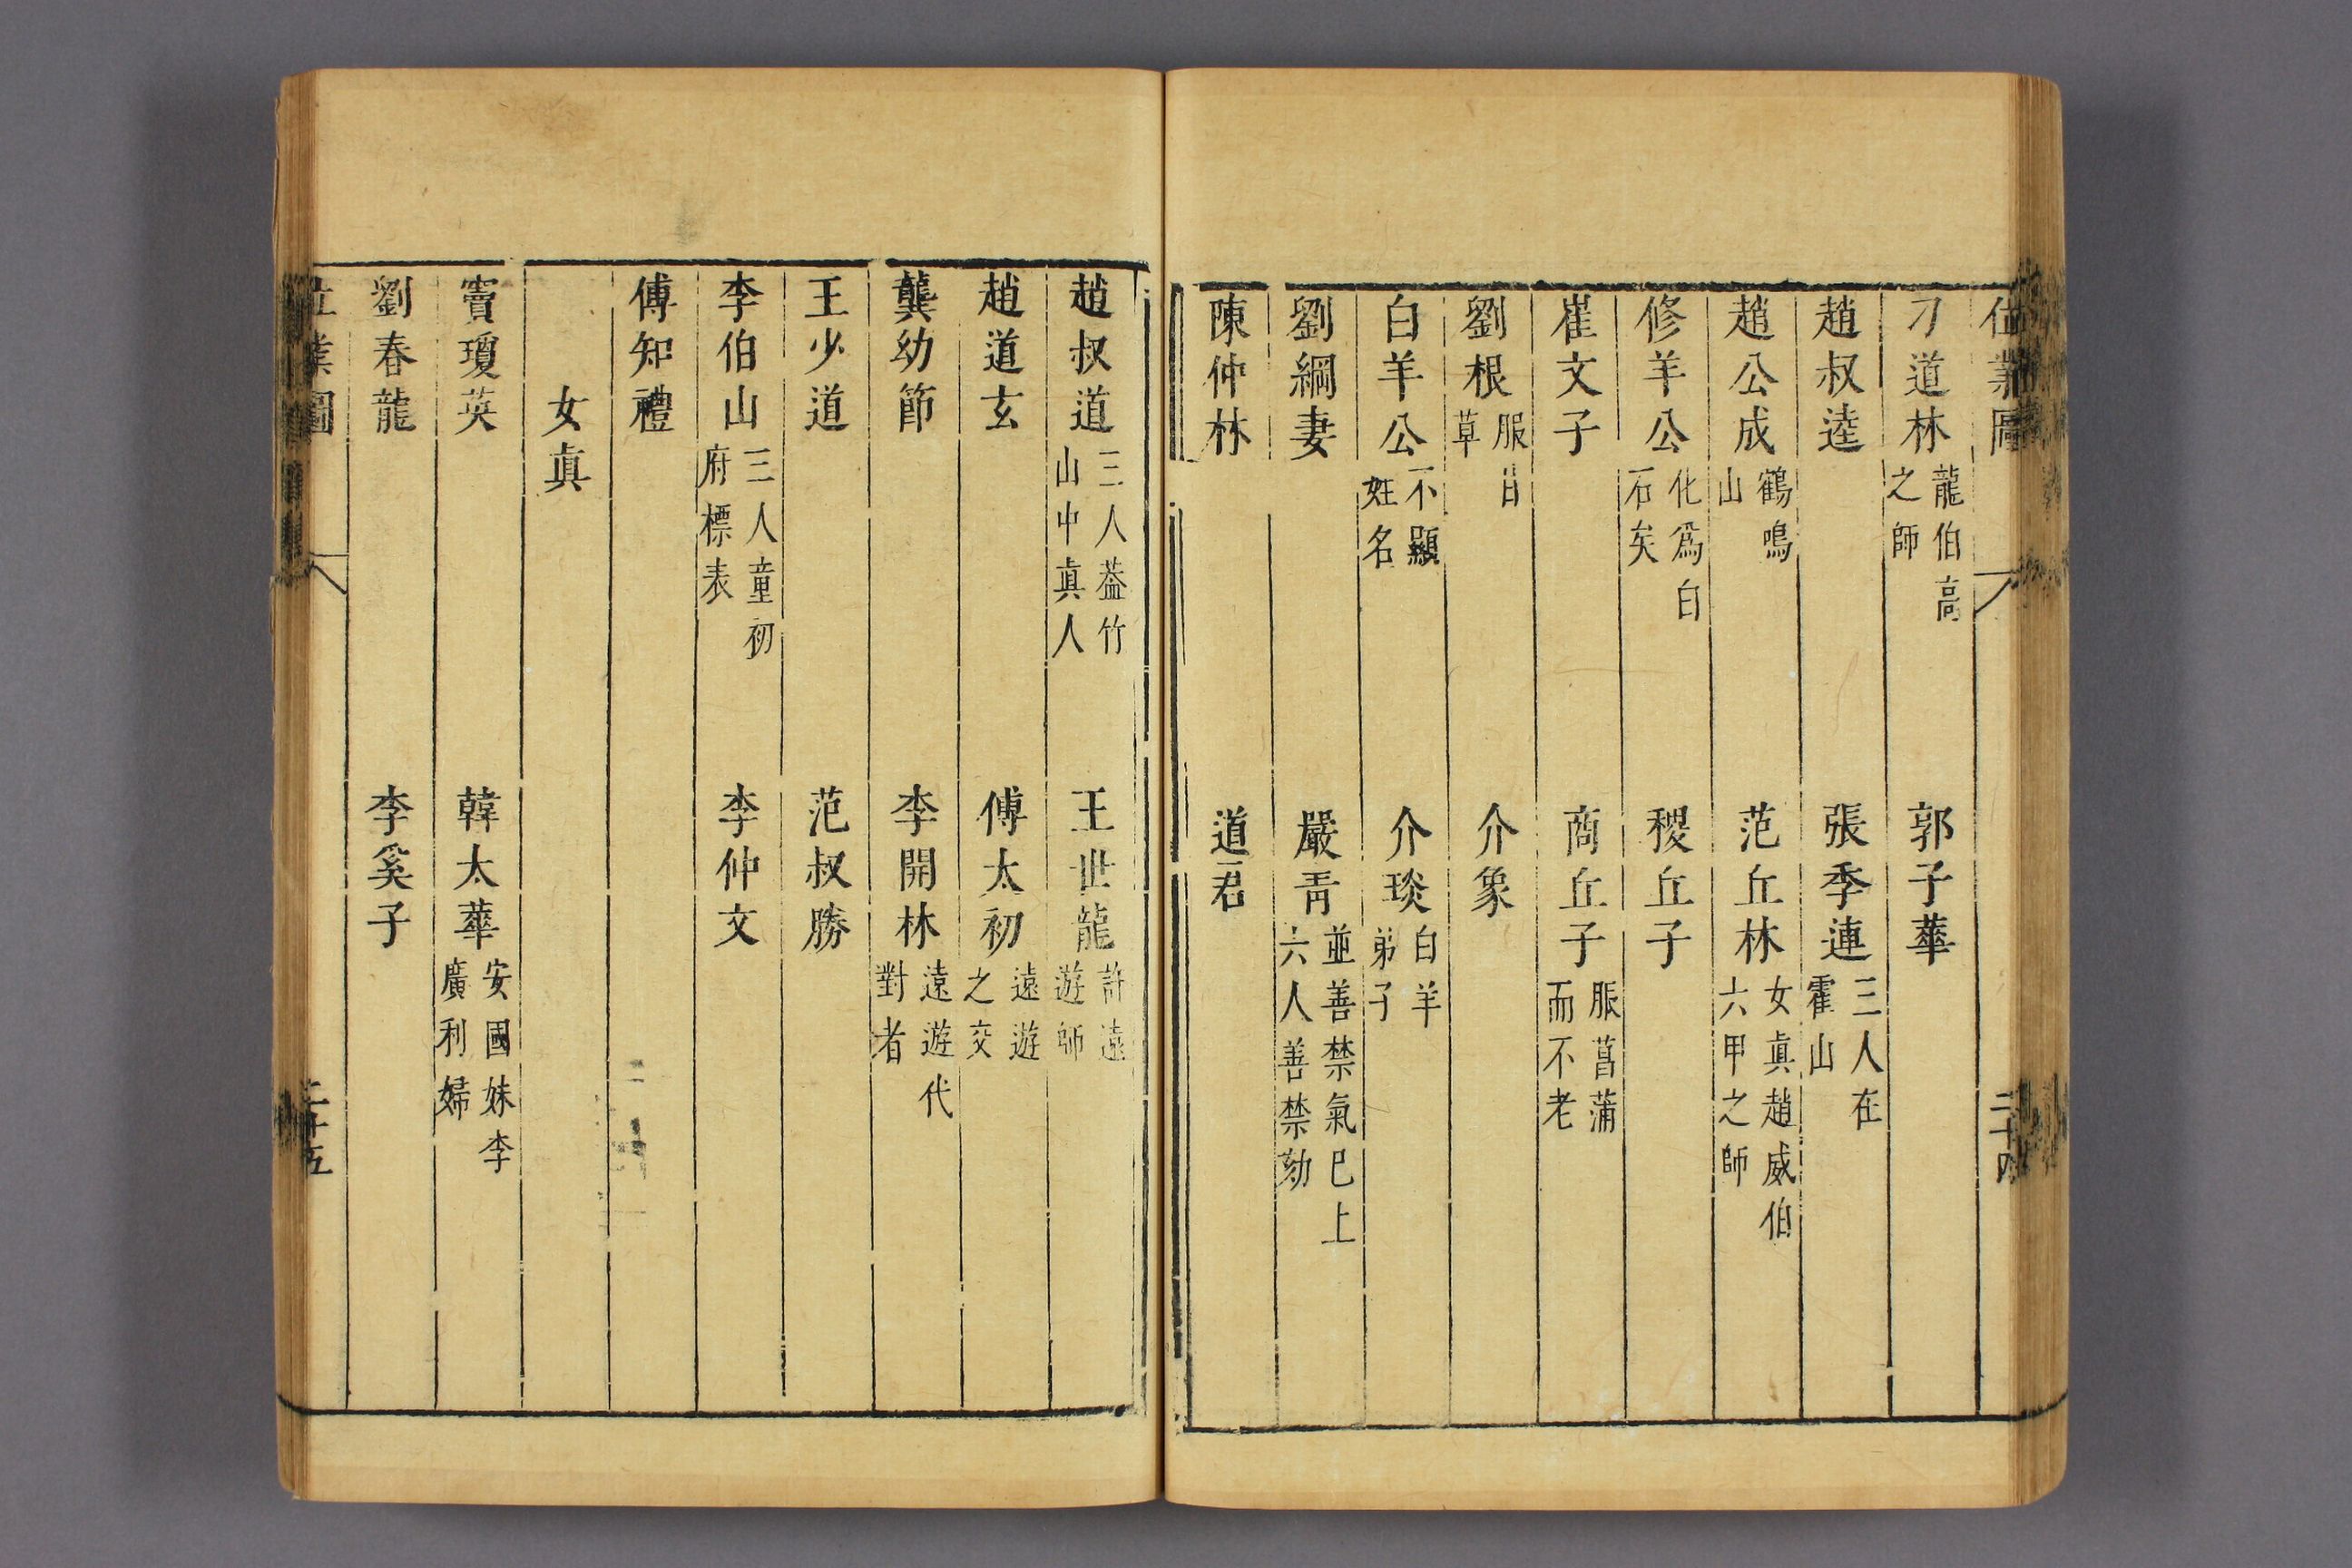 位業圖 三十四
刁道林 龍伯高之師 郭子華
趙叔逵 張季連 三人在霍山
趙公成 鶴鳴山 范丘林 女真趙威伯六甲之師
修羊公 化為白石矣 稷丘子
崔文子 商丘子 服菖蒲而不老
劉根 服甘草 介象
白羊公 不顯姓名 介琰 白羊弟子
劉綱妻 嚴青 並善禁氣巳上六人善禁劾
陳仲林 道君
趙叔道 三人葢竹山中真人 王世龍 許遠遊師
趙道玄 傅太初 遠遊之交
龔幼節 李開林 遠遊代對者
王少道 范叔勝
李伯山 三人童初府標表 李仲文
傅知禮
女真
竇瓊英 韓太華 安國妹李廣利婦
劉春龍 李奚子
位業圖 三十五